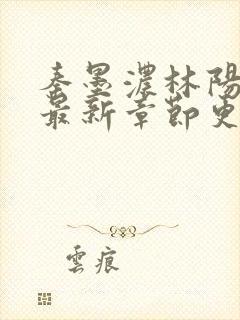 秦墨濃林陽
最新章節更
雲痕